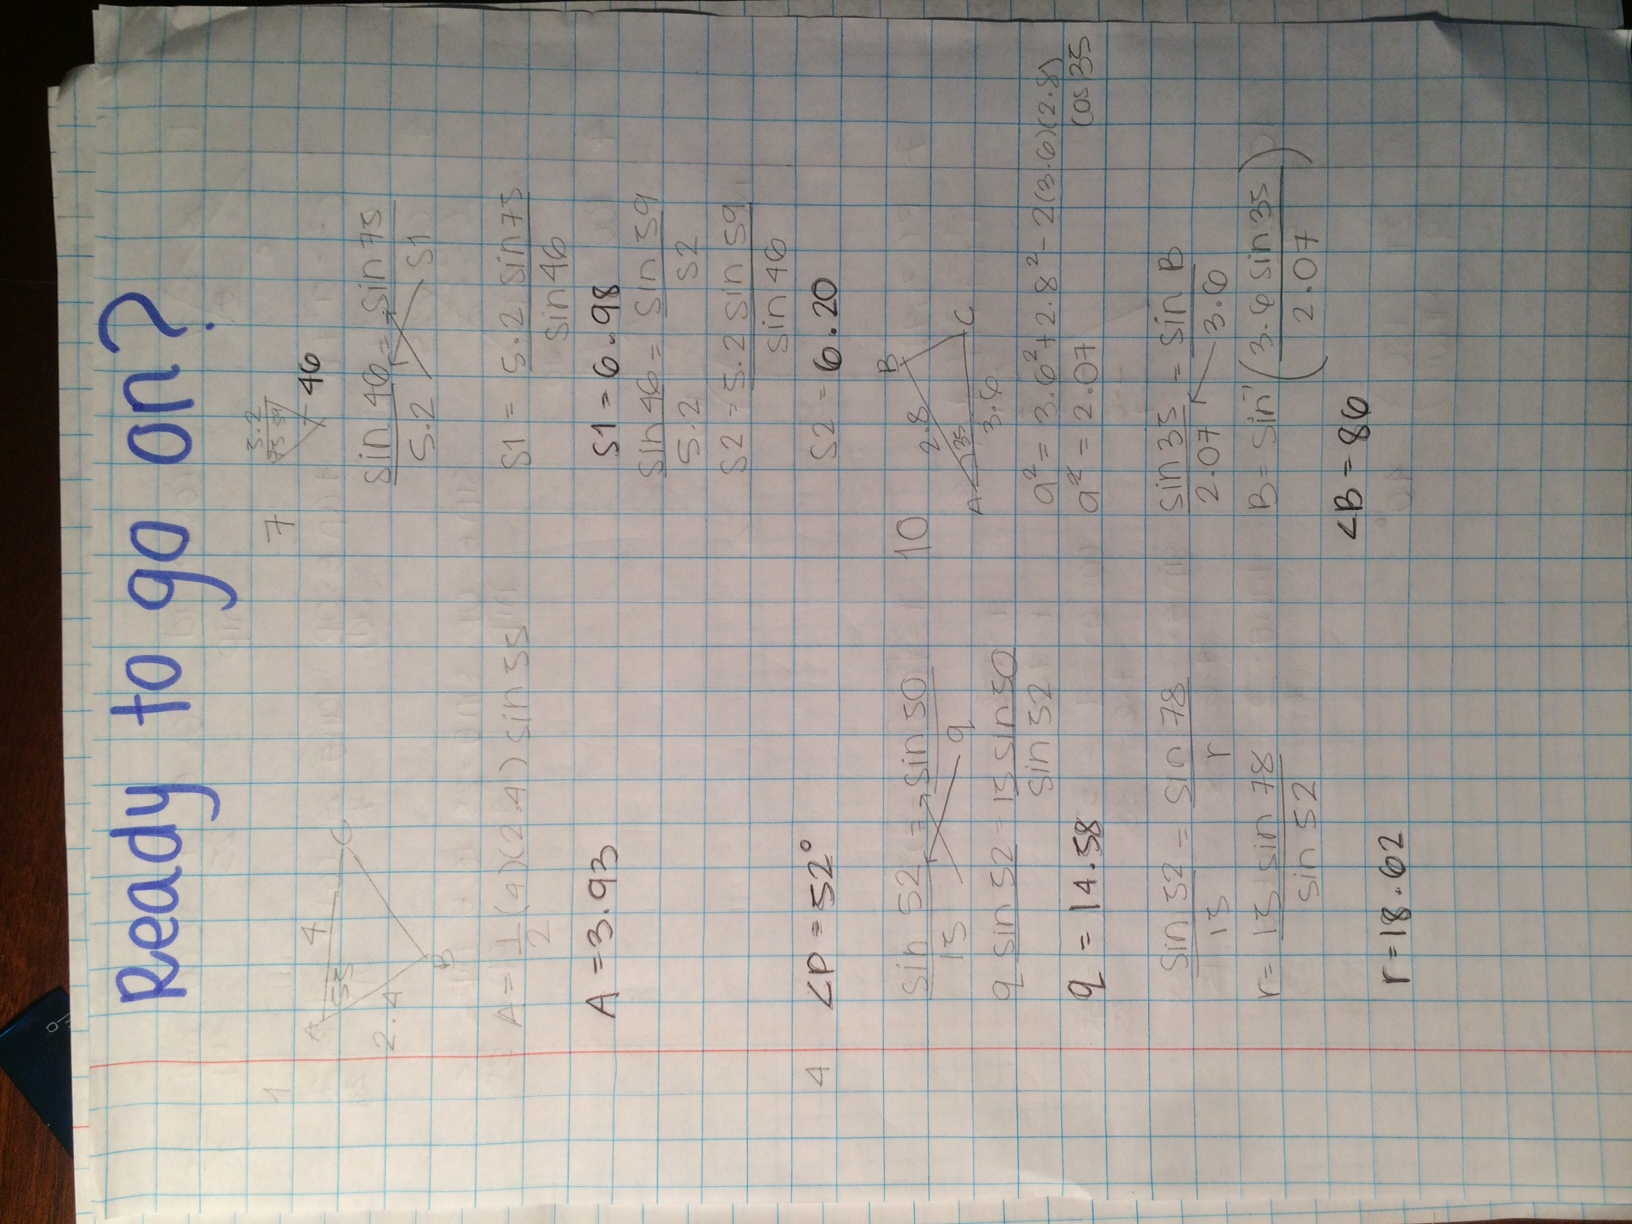 Ready to go on?
1
A
55
4
C
2.4
B
A = 1/2 (4)(2.4) sin 55
A = 3.93
4
<P = 52°
sin 52 = sin 50
15 q
q sin 52 = 15 sin 50
sin 52
q = 14.58
sin 52 = sin 78
15 r
r = 15 sin 78
sin 52
r = 18.62
7
5.2
75 59
46
sin 46 = sin 75
5.2 S1
S1 = 5.2 sin 75
sin 46
S1 = 6.98
sin 46 = sin 59
5.2 S2
S2 = 5.2 sin 59
sin 46
S2 = 6.20
10
B
2.8
A 35 C
3.6
a² = 3.6² + 2.8² - 2(3.6)(2.8)
cos 35
a² = 2.07
sin 35 = sin B
2.07 3.6
B = sin⁻¹ (3.6 sin 35)
2.07
<B = 86